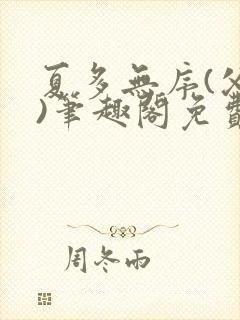 夏多無序(父
)筆趣閣免費
周冬雨